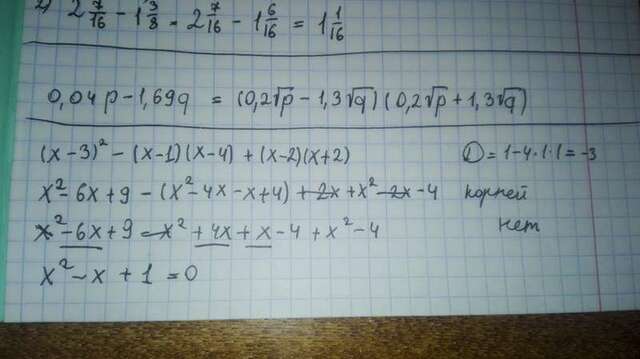 2) 2 7/16 - 1 3/8 = 2 7/16 - 1 6/16 = 1 1/16
0,04p - 1,69q = (0,2√p - 1,3√q)(0,2√p + 1,3√q)
(x-3)² - (x-1)(x-4) + (x-2)(x+2)
D = 1-4·1·1 = -3
x² - 6x + 9 - (x² - 4x - x + 4) + 2x + x² - 2x - 4
корней
x² - 6x + 9 - x² + 4x + x - 4 + x² - 4
нет
x² - x + 1 = 0